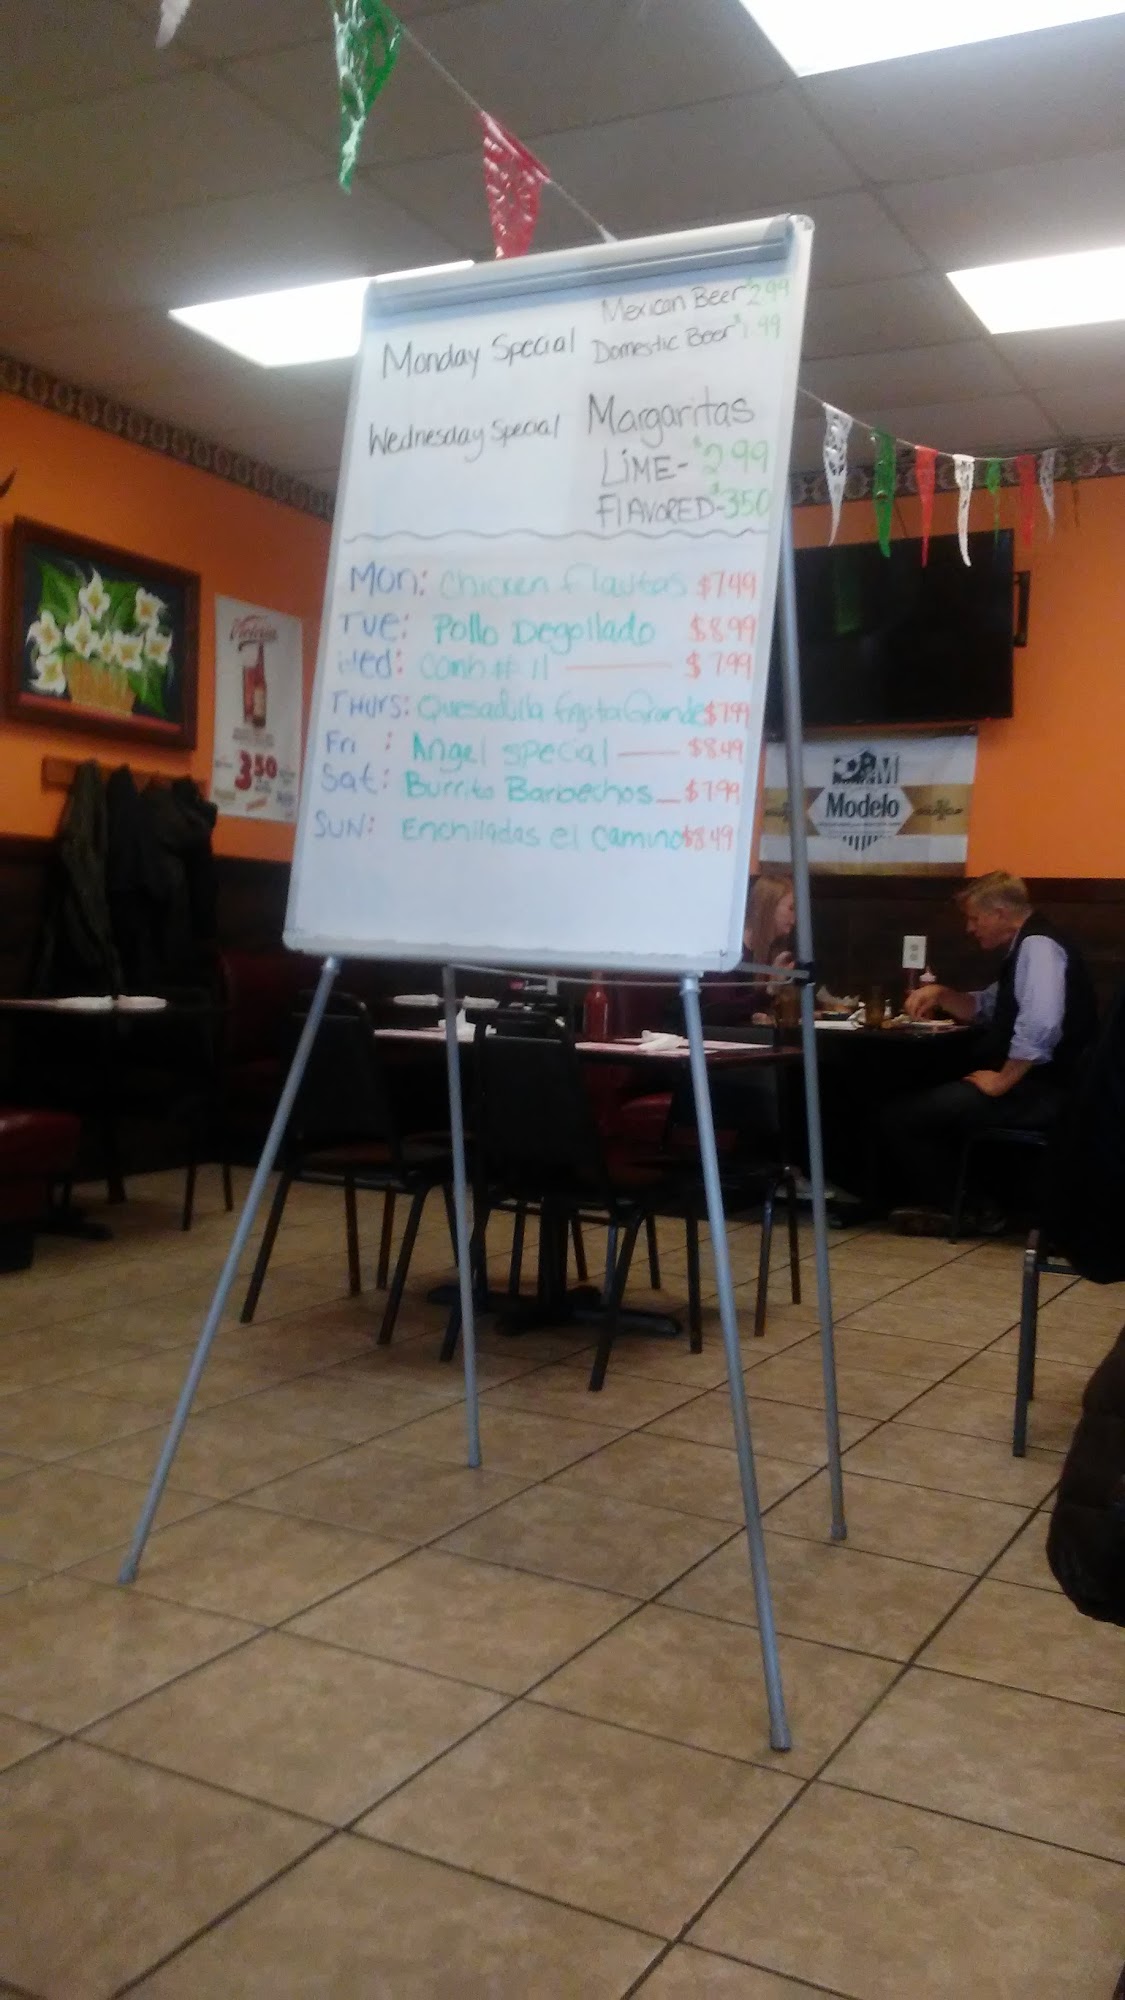 Mexican Beer $2.99
Monday Special Domestic Beer $1.99
Wednesday Special Margaritas
LIME- $2.99
FlAVORED- $350
Mon: Chicken flautas $7.49
Tue: Pollo Degollado $8.99
Wed: Comb # 11 $7.99
THURS: Quesadilla fajita Grande $7.99
Fri : Angel special $8.49
Sat: Burrito Barbechos $7.99
SUN: Enchiladas el Camino $8.49
Victoria
3 50
Modelo